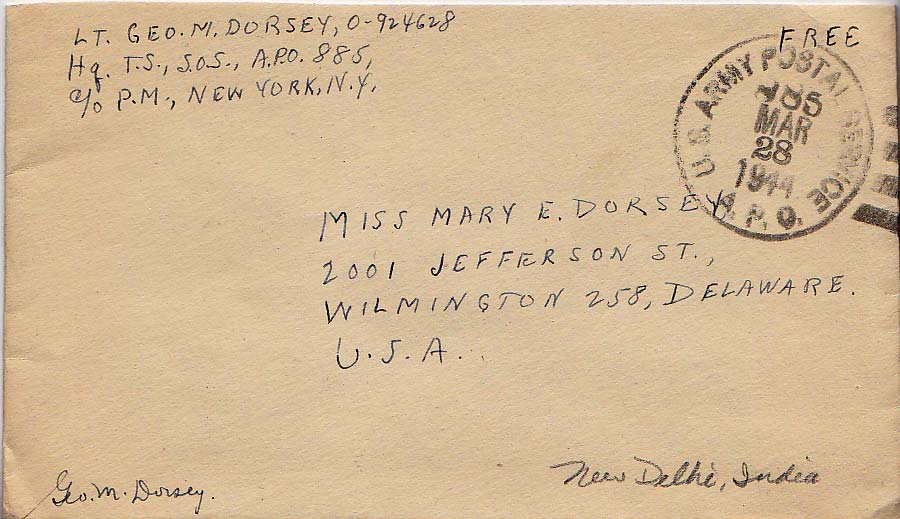 LT. GEO. M. DORSEY, O-924628
Hq. T.S., S.O.S., A.P.O. 885,
c/o P.M., NEW YORK, N.Y.
FREE
U.S. ARMY POSTAL SERVICE
MAR
28
1944
A.P.O.
MISS MARY E. DORSEY
2001 JEFFERSON ST.,
WILMINGTON 258, DELAWARE.
U.S.A.
Geo. M. Dorsey.
New Delhi, India